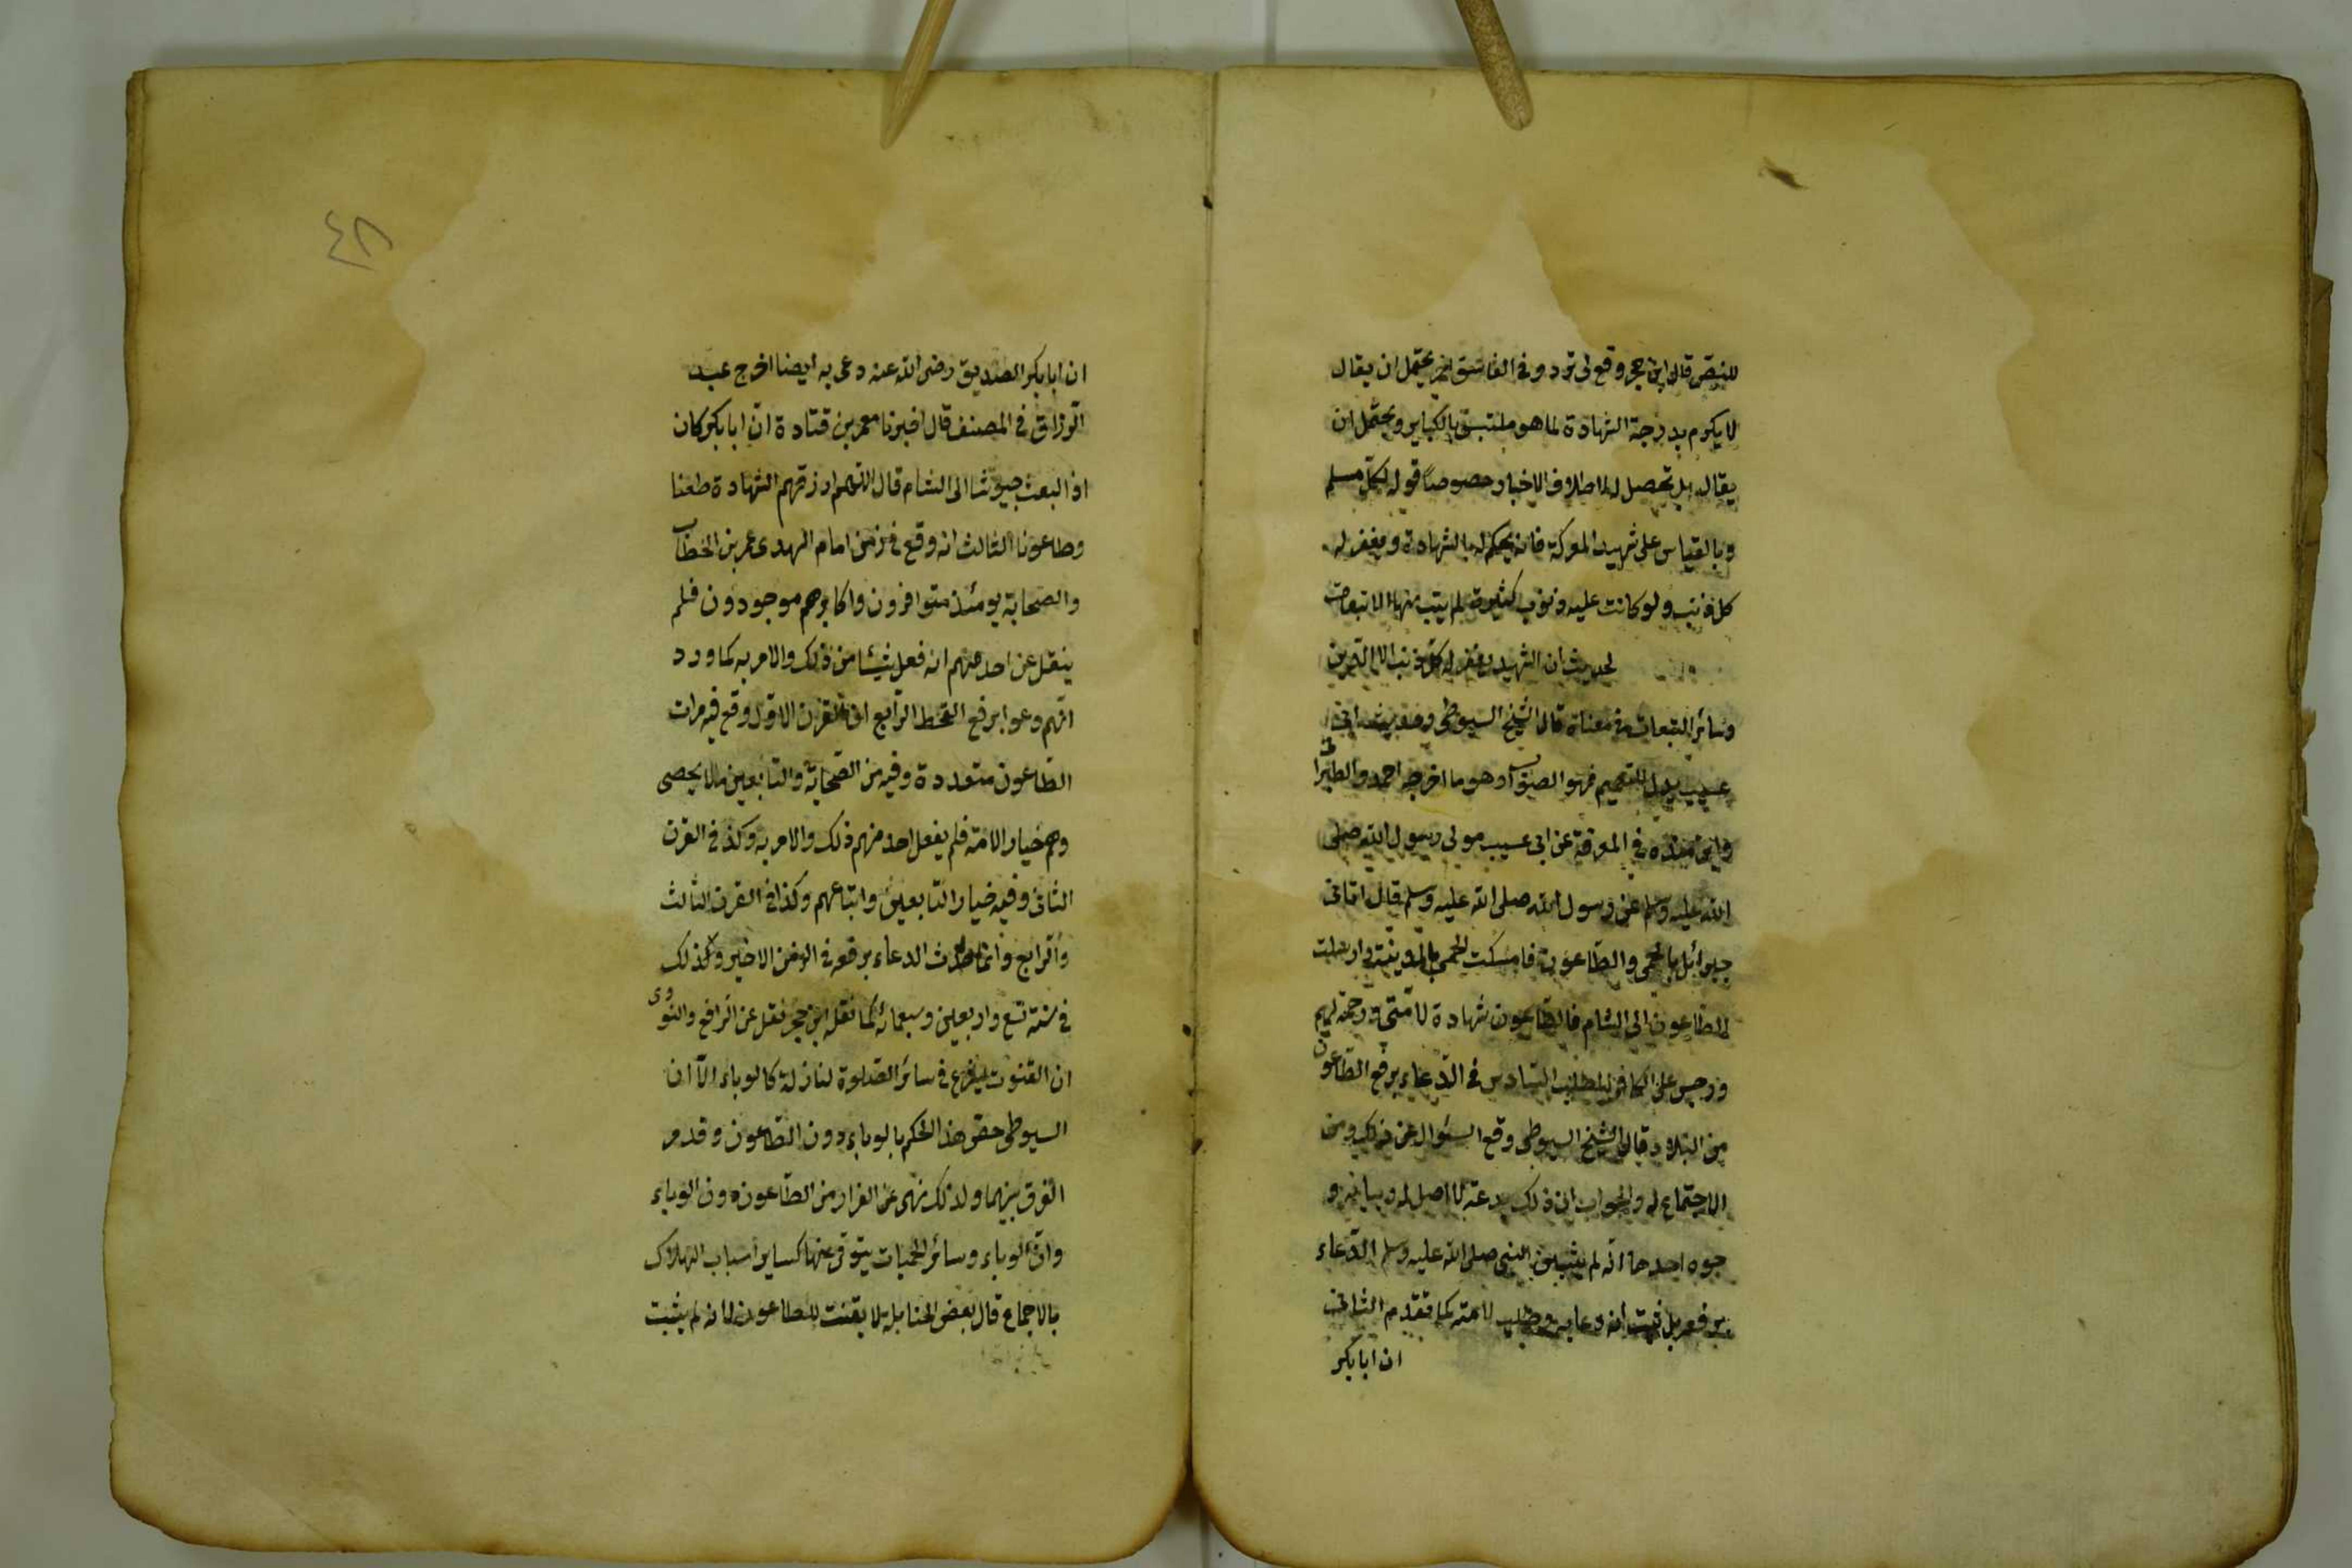 للنقص قال ابن حجر وقع لي تردد في الفاسق يحتمل ان يقال
لا يكرم بدرجة الشهادة لما هو ملتبس بالكباير ويحتمل ان
يقال بل تحصل له لاطلاق الاخبار خصوصاً قوله لكل مسلم
وبالقياس على شهيد المعركة فانه يحكم له بالشهادة ومغفر له
كل ذنب ولو كانت عليه ذنوب كثيرة لم يتب منها الا تبعات
لحديث ان الشهيد يغفر له كل ذنب الا الدين
وسائر التبعات في معناه قال الشيخ السيوطي وحديث ابي
عسيب يدل للتعميم فهو الصواب وهو ما اخرجه احمد والطبراني
وابن منده في المعرفة عن ابي عسيب مولى رسول الله صلى
الله عليه وسلم عن رسول الله صلى الله عليه وسلم قال اتاني
جبرائيل بالحمى والطاعون فامسكت الحمى بالمدينة وارسلت
الطاعون الى الشام فالطاعون شهادة لامتي ورحمة لهم
ورجس على الكافر المطلب السادس في الدعاء برفع الطاعون
من البلاد قال الشيخ السيوطي وقع السئوال عن ذلك ومن
الاجتماع له والجواب ان ذلك بدعة لا اصل له وبيانه و
جوه احدها انه لم يثبت عن النبي صلى الله عليه وسلم الدعاء
برفعه بل ثبت انه دعا به وطلب لامته كما تقدم الثاني
ان ابا بكر
٤٨
ان ابا بكر الصديق رضى الله عنه دعى به ايضا اخرج عبد
الرزاق في المصنف قال اخبرنا معمر بن قتادة ان ابا بكر كان
اذا بعث جيوشا الى الشام قال اللهم ارزقهم الشهادة طعنا
وطاعونا الثالث انه وقع في زمن امام الهدى عمر بن الخطاب
والصحابة يومئذ متوافرون واكابرهم موجودون فلم
ينقل عن احد منهم انه فعل شيئا من ذلك والامر به كما ورد
انهم دعوا برفع القحط الرابع ان القرن الاول وقع فيه مرات
الطاعون متعددة وفيه من الصحابة والتابعين ما لا يحصى
وهم خيار الامة فلم يفعل احد منهم ذلك والامر به وكذا في القرن
الثاني وفيه خيار التابعين واتباعهم وكذا في القرن الثالث
والرابع وانما حدث الدعاء برفعه في الزمن الاخير وكذلك
في سنة تسع واربعين وسبعمائة كما نقله ابن حجر نقل عن الرافعي والنووى
ان القنوت يشرع في سائر الصلوة لنازلة كالوباء الا ان
السيوطي حقق هذا الحكم بالوباء دون الطاعون وقد مر
الفرق بينهما ولذلك نهى عن الفرار من الطاعون دون الوباء
وان الوباء وسائر الحميات يتوقى عنها كساير اسباب الهلاك
بالاجماع قال بعض الحنابلة لا يقنت للطاعون لانه لم يثبت